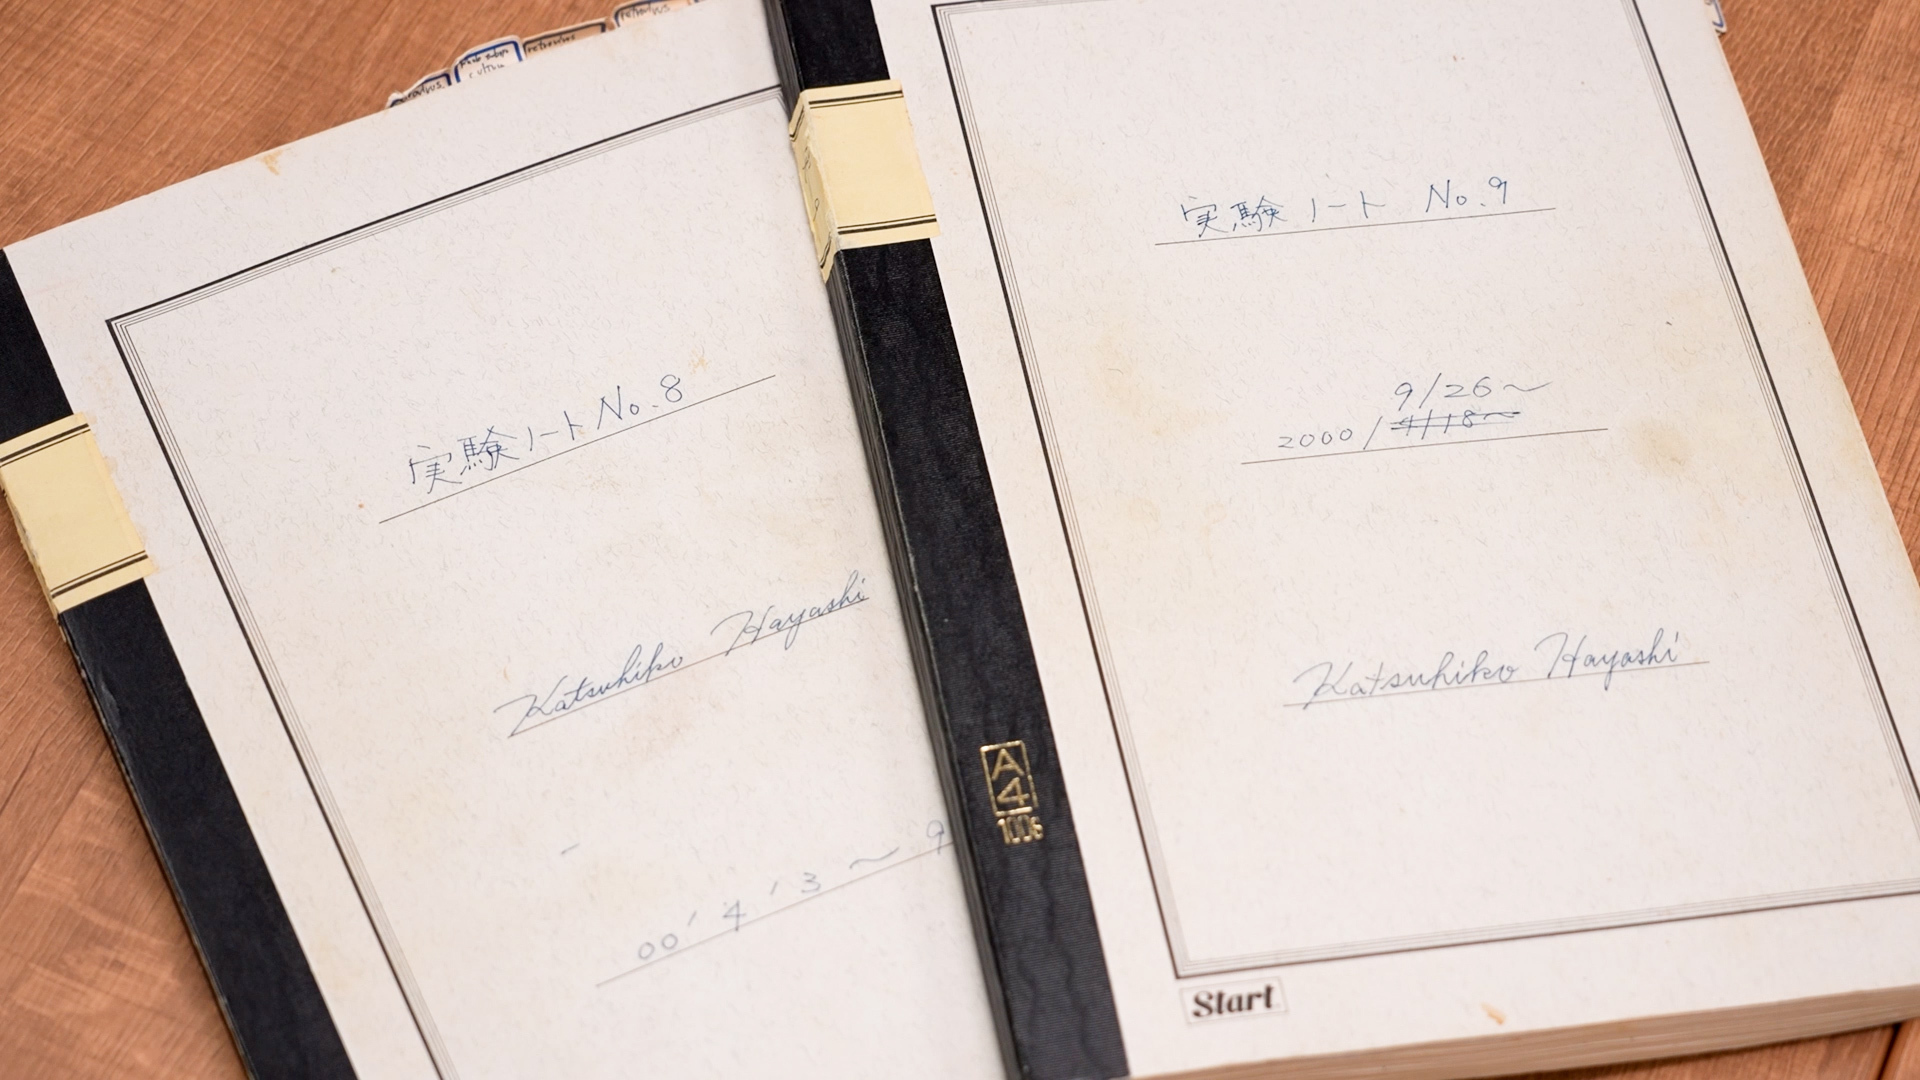 retrovirus
実験ノート No.8
Katsuhiko Hayashi
00' 4 ' 3 ～ 9
実験ノート No.9
9/26～
2000/4/18～
Katsuhiko Hayashi
A4
100s
Start